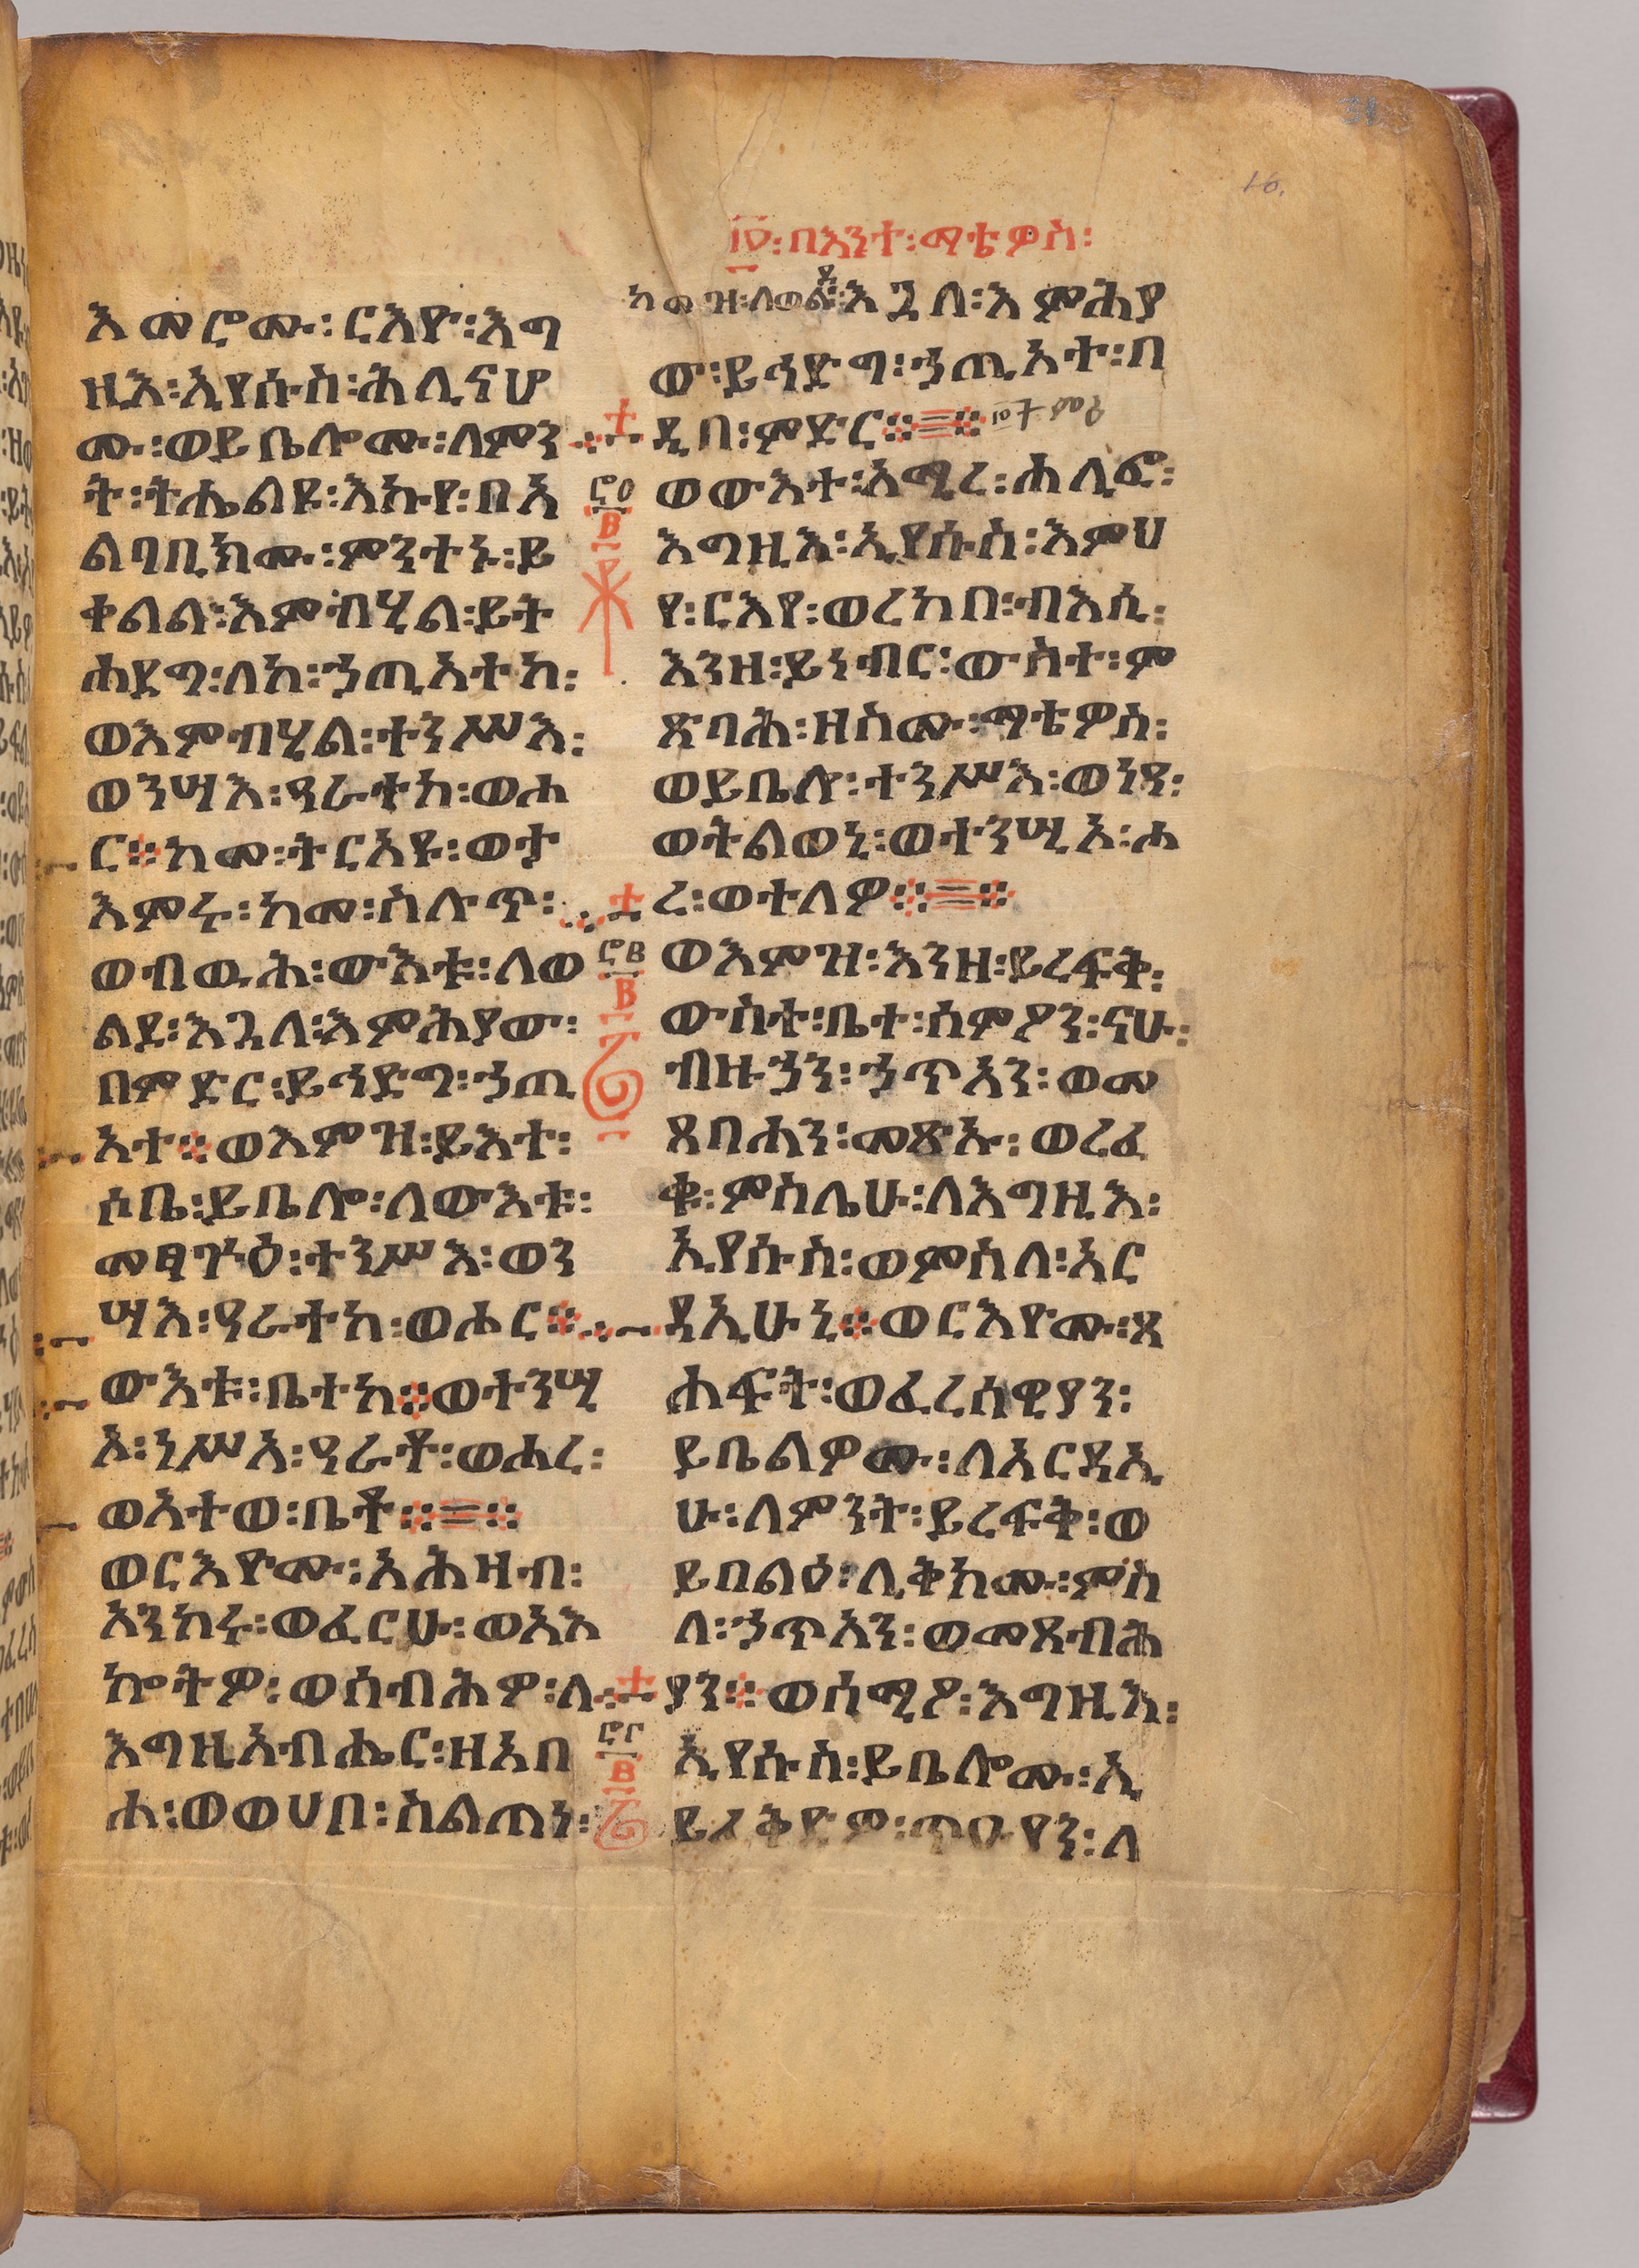 31
16.
፲፬፡በእንተ፡ማቴዎስ፡
እመሮሙ፡ርእዮ፡እግ
ዚእ፡ኢየሱስ፡ሕሊናሆ
ሙ፡ወይቤሎሙ፡ለምን
ት፡ትሔልዩ፡እኩየ፡በአ
ልባቢክሙ፡ምንተኑ፡ይ
ቀልል፡እምብሂል፡ይት
ሐደግ፡ለከ፡ኃጢአተከ፡
ወእምብሂል፡ተንሥእ፡
ወንሣእ፡ዓራተከ፡ወሐ
ር።ከመ፡ትርአዩ፡ወታ
እምሩ፡ከመ፡ስሉጥ፡
ወብዉሕ፡ውእቱ፡ለወ
ልደ፡እጓለ፡እምሕያው፡
በምድር፡ይኅድግ፡ኃጢ
አተ።ወእምዝ፡ይእተ፡
ሶቤ፡ይቤሎ፡ለውእቱ፡
መፃጕዕ፡ተንሥእ፡ወን
ሣእ፡ዓራተከ፡ወሑር።
ውእቱ፡ቤተከ።ወተንሢ
ኦ፡ነሥአ፡ዓራቶ፡ወሐረ፡
ወአተወ፡ቤቶ።=።
ወርእዮሙ፡አሕዛብ፡
አንከሩ፡ወፈርሁ፡ወአእ
ኰትዎ፡ወሰብሕዎ፡ለ
እግዚአብሔር፡ዘአበ
ሐ፡ወወሀበ፡ስልጠነ፡
ከመዝ፡ለወልደ፡እጓለ፡እምሕያ
ው፡ይኅድግ፡ኃጢአተ፡በ
ዲበ፡ምድር።=።
ወውእተ፡አሚረ፡ሕሊፎ፡
እግዚእ፡ኢየሱስ፡እምህ
የ፡ርእየ፡ወረከበ፡ብእሲ፡
እንዘ፡ይነብር፡ውስተ፡ም
ጽባሕ፡ዘስሙ፡ማቴዎስ፡
ወይቤሎ፡ተንሥእ፡ወነዓ፡
ወትልወኒ፡ወተንሢኦ፡ሐ
ረ፡ወተለዎ።=።
ወእምዝ፡እንዘ፡ይረፍቅ፡
ውስተ፡ቤተ፡ስምዖን፡ናሁ፡
ብዙኃን፡ኃጥአን፡ወመ
ጸበሐን፡መጽኡ፡ወረፈ
ቁ፡ምስሌሁ፡ለእግዚእ፡
ኢየሱስ፡ወምስለ፡አር
ዳኢሁኒ።ወርእዮሙ፡ጸ
ሐፍት፡ወፈረሰዊያን፡
ይቤልዎሙ፡ለአርዳኢ
ሁ፡ለምንት፡ይረፍቅ፡ወ
ይበልዕ፡ሊቅከሙ፡ምስ
ለ፡ኃጥአን፡ወመጸብሕ
ያን።ወሰሚዖ፡እግዚእ፡
ኢየሱስ፡ይቤሎሙ፡ኢ
ይፈቅድዎ፡ጥዑያን፡ለ